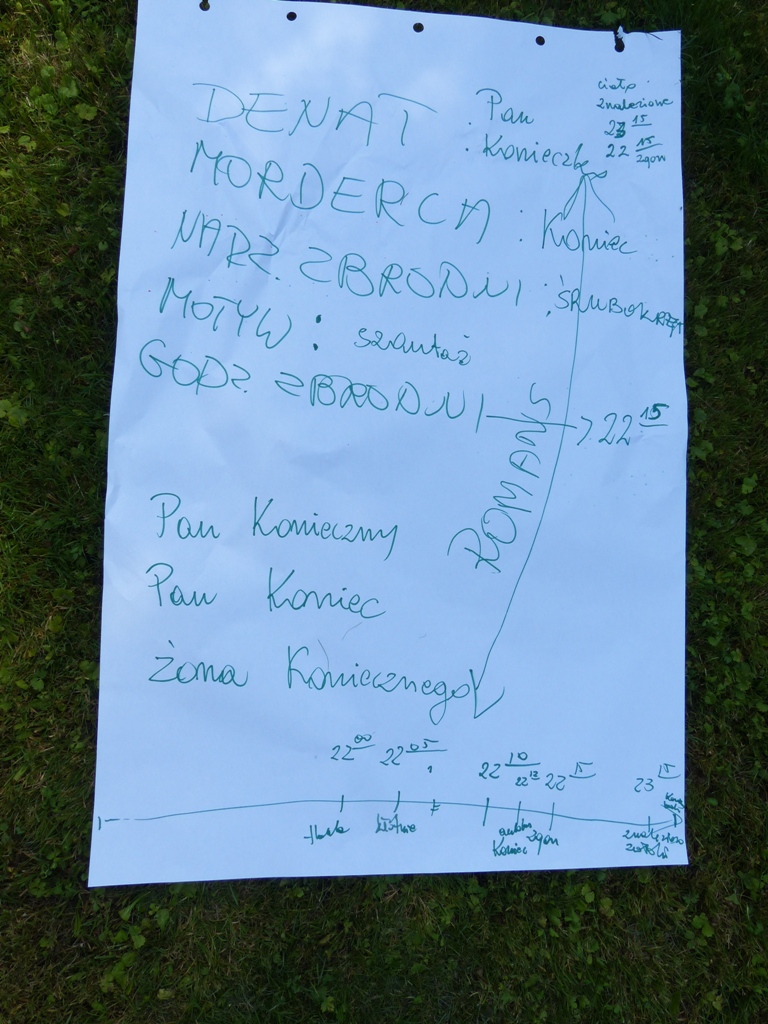 DENAT : Pan
: Konieczny
ciało
znalezione
23 15
22 15
zgon
MORDERCA : Koniec
NARZ. ZBRODNI : ŚRUBOKRĘT
MOTYW : szantaż
GODZ. ZBRODNI → 22 15
ROMANS
Pan Konieczny
Pan Koniec
Żona Koniecznego
22 00 22 05 22 10 22 13 22 15 23 15
kłótnia
Koniec zgon